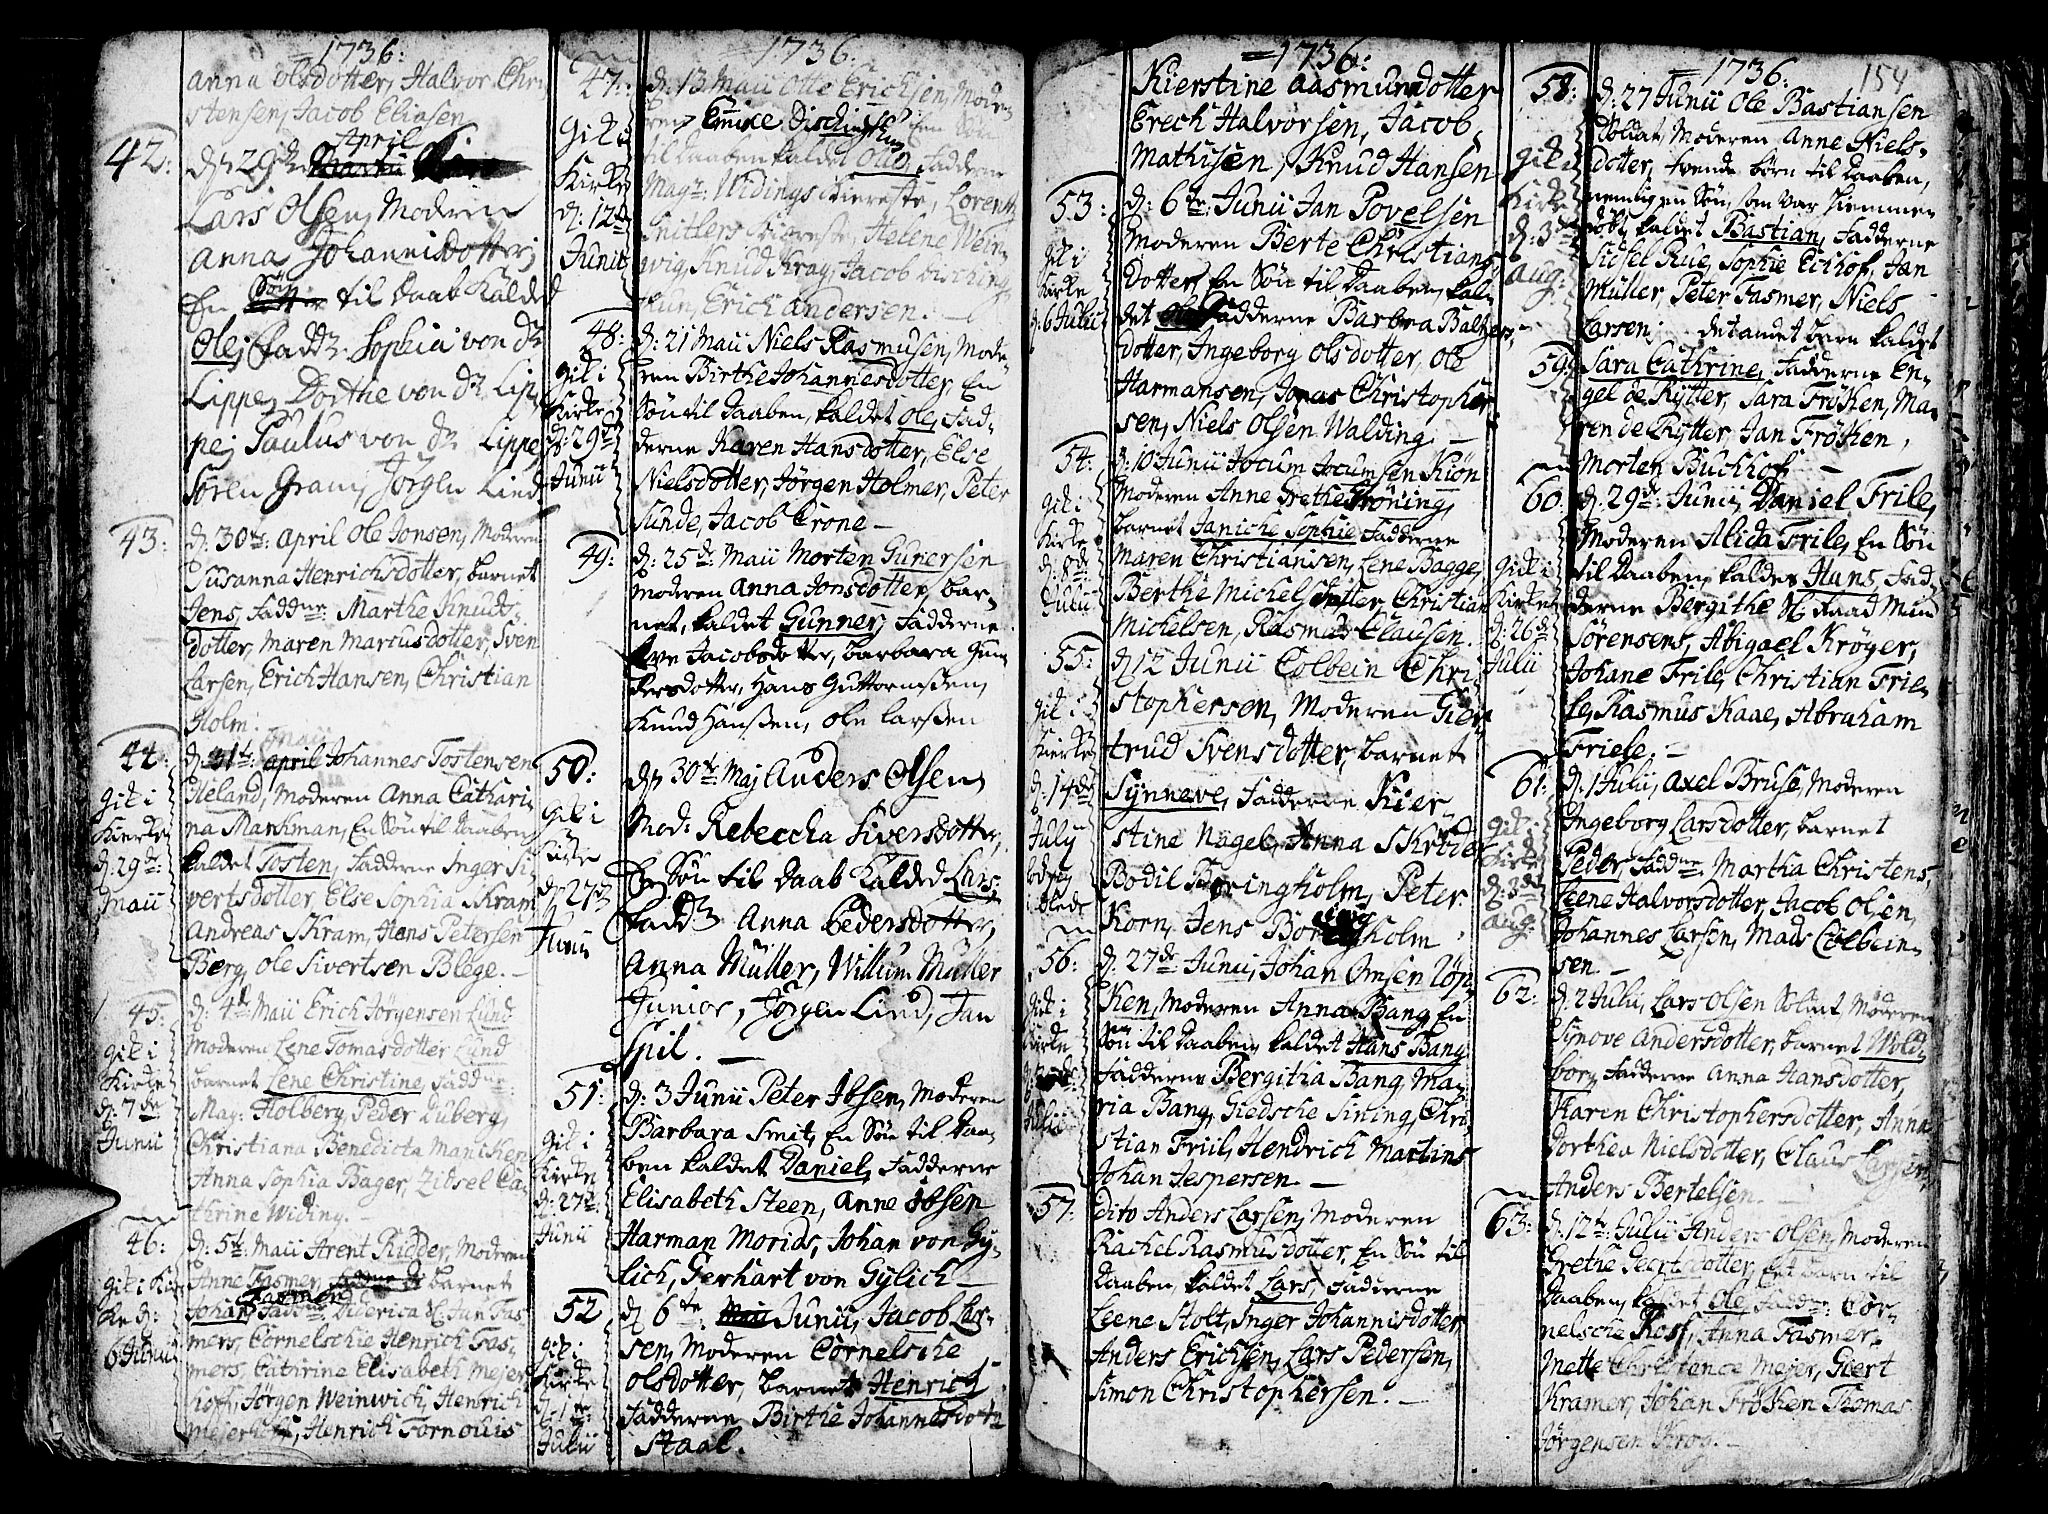 =1736:
Anna Olsdotter, Halvor Chri
stensen, Jacob Eliasen
42: d: 29de April
Lars Olsen, Moderen
Anna Johannisdotter,
En Søn til Daab kaldt
Ole, Fadd: Sophia von der
Lippe, Dorthe von der Lip
pe, Paulus von der Lippe,
Søren Gram, Jørgen Lind
43: d: 30te: April Ole Jonsen, Moderen
Susanna Henrichsdotter, barnet
Jens, Faddne: Marthe Knuds
dotter, Maren Marcusdotter, Sven
Larsen, Erich Hansen, Christian
Holm:
44: d: 1te: Maii Johannes Tostensen
Heland, Moderen Anna Cathari
na Markman, En Søn til Daaben,
kaldet Tosten, Fadderne Inger Si
vertsdotter, Else Sophia Skram
Andreas Skram, Hans Petersen
Berg, Ole Sivertsen Blege. -
Gik i
Kierke
d: 29de:
Maii
45: d: 4de Maii Erich Jørgensen Lund
Moderen Lene Tomasdotter Lund
barnet Lene Christine, Faddne:
Mag: Holberg, Peder Duberg,
Christiana Benedicta
Anna Sophia Bager, Zidsel Ca
thrine Widing. -
Gik i
Kirke
d: 7de
Junii
46: d: 5te: Maii Arent Ridder, Moderen
Anne Fasmer, barnet
Johan Fasmer, Faddne: Diderica Sl. Jan Fas
mers, Cornelschie Henrich Fas
mers, Cathrine Elisabeth Mejer
hoff, Jørgen Weinwich, Henrich
Mejerhoff, Henrich Fornouis
Gik i Kir
ke d:
6 Junii
=1736.
47: d: 13 Maii Otte Erichsen, Mode
ren, En Søn
til Daaben kaldet Otto, Fadderne
Mag: Widings Kiereste, Lorentz
Snitlers Kiereste, Helene Wein
wig, Knud Krag, Jacob
Erich Andersen. -
Gik i
Kirke
d: 12te
Junii
48: d: 21 Maii Niels Rasmusen, Mode
ren Birthe Johannesdotter, En
Søn til Daaben, kaldet Ole, Fad-
derne Karen Hansdotter, Else
Nielsdotter, Jørgen Holmer, Peter
Sunde, Jacob Crone -
Gik i
Kirke
d: 29de
Junii
49: d: 25de: Maii Morten Gunersen
Moderen Anna Jonsdotter, bar-
net, kaldet Gunner, Fadderne
Eve Jacobsdotter, Barbara Gun
dersdotter, Hans Guttormsen,
Knud Hansen, Ole Larsen
50: d: 30te Maj Anders Olsen
Mod: Rebeccha Siversdotter,
En Søn til Daab kalded Lars,
Fadd: Anna Pedersdotter,
Anna Müller, Willum Müller
Junior, Jørgen Lind, Jan
Spil. -
Gik i
Kirke
d: 27de
Junii
51: d: 3 Junii Peter Ibsen, Moderen
Barbara Smit, En Søn til Daa
ben kaldet Daniel, Fadderne
Elisabeth Steen, Anne Ibsen
Harman Morids, Johan von Gy-
lich, Gerhart von Gylich -
Gik i
Kirke
d: 27de:
Junii
52 d: 6te: Junii, Jacob Lar-
sen, Moderen Cornelsche
Olsdotter, barnet Henrich
Fadderne Birthe Johannesdotter
Staal.
Gik i
Kirke
d: 1te:
Julii
=1736:
Kierstine Aasmundotter
Erech Halvorsen, Jacob
Mathisen, Knud Hansen
53: d: 6te: Junii Jan Povelsen
Moderen Berte Christians
dotter, En Søn til Daaben, kal-
det Ole Fadderne Barbra Baltzers
dotter, Ingeborg Olsdotter, Ole
Harmansen, Jonas Christopher
sen, Niels Olsen Walding. -
Gik i
Kirke
d: 6 Julii
54: d: 10 Junii Jocum Jocumsen Kiøn
Moderen Anne Grethe Frøning,
barnet Janiche Sophie Fadderne
Maren Christiansen, Lene Bagge,
Berthe Michelsdatter, Christian
Michelsen, Rasmus Clausen.
Gik i
Kirke
d: 8de:
Julii
55: d: 12 Junii Colbein Chri
stophersen, Moderen Gier
trud Svensdotter, barnet
Synneve, Fadderne Kier-
stine Nagel, Anna Skrøder
Bodil Boringholm, Peter
Korn, Jens Boringholm
Gik i
Kierke
d: 14de
July
56: d: 27de: Junii, Johan Omsen Løp
ken, Moderen Anna Bang, En
Søn til Daaben, kaldet Hans Bang
Fadderne Bergitta Bang, Ma-
ria Bang, Giedsche Sining, Chri
stian Friil, Hendrich Martins
Johan Jespersen. -
Gik i
Kirke
Julii
57: dito Anders Larsen, Moderen
Rachel Rasmusdotter, En Søn til
Daaben, kaldet Lars, Fadderne
Leene Stolt, Inger Johannisdotter
Anders Erichsen, Lars Pedersen,
Simon Christophersen. -
=1736: 154
58: d: 27 Junii Ole Bastiansen
Soldat, Moderen Anne Niels-
dotter, tvende børn til Daaben,
nemlig en Søn, som var hiemme
døbt, kaldet Bastian, Fadderne
Sidsel Rue, Sophie Eichof, Jan
Müller, Peter Fasmer, Niels
Larsen: det andet barn kaldet
Gik i
Kirke
d: 3de
Aug:
59: Sara Cathrine, Fadderne En-
gel de Rytter, Sara Frøken, Ma-
ren de Rytter, Jan Frøken,
Morten Buchhof -
60: d: 29de: Junii, Daniel Frile,
Moderen Alida Frile, En Søn
til Daaben, kaldet Hans, Fad-
derne Bergithe Sl. Raad Mun
Sørensens, Abigael Krøger,
Johane Frile, Christian Frie-
le, Rasmus Kaae, Abraham
Friele. -
Gik i
Kirke
d: 26de
Julii
61: d: 1 Julii, Axel Bruse, Moderen
Ingeborg Larsdotter, barnet
Peder, Faddne: Martha Christens,
Leene Halvorsdotter, Jacob Olsen,
Johannes Larsen, Mads Colbein-
sen -
Gik i
Kirke
d: 3de
Aug:
62: d: 2 Julii, Lars Olsen Soldat Moderen
Synove Andersdotter, barnet Wold
borg Fadderne Anna Hansdotter,
Karen Christophersdotter, Anna
Dorthea Nielsdotter, Claus Larsen,
Anders Bertelsen. -
63: d: 12te: Julii Anders Olsen, Moderen
Grethe Geertsdotter, Eet barn til
Daaben, kaldet Ole, Faddne: Cor
nelsche Rosf, Anna Fasmer,
Mette Christence Mejer, Giert
Kramer, Johan Frøken Thomas
Jørgensen Krog. -